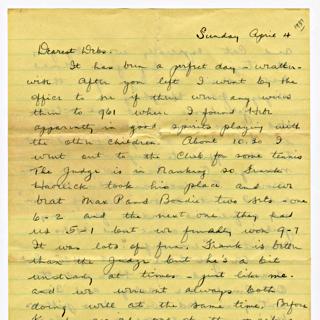 Sunday April 4
Dearest Debs:
It has been a perfect day - weather-
wise After you left I went by the
office to see if there were any wires
then to 961 where I found
apparently in good spirits playing with
the other children. About 10.30 I
went out to the Club for some tennis
The Judge is in Nanking so Frank
took his place and we
beat Max P and two sets - one
6-2 and the next one they had
us 5-1 but we finally won 9-7
It was lots of fun, Frank is better
than the Judge but he's a bit
unsteady at times - just like me.
and we weren't always both
doing well at the same time. Before